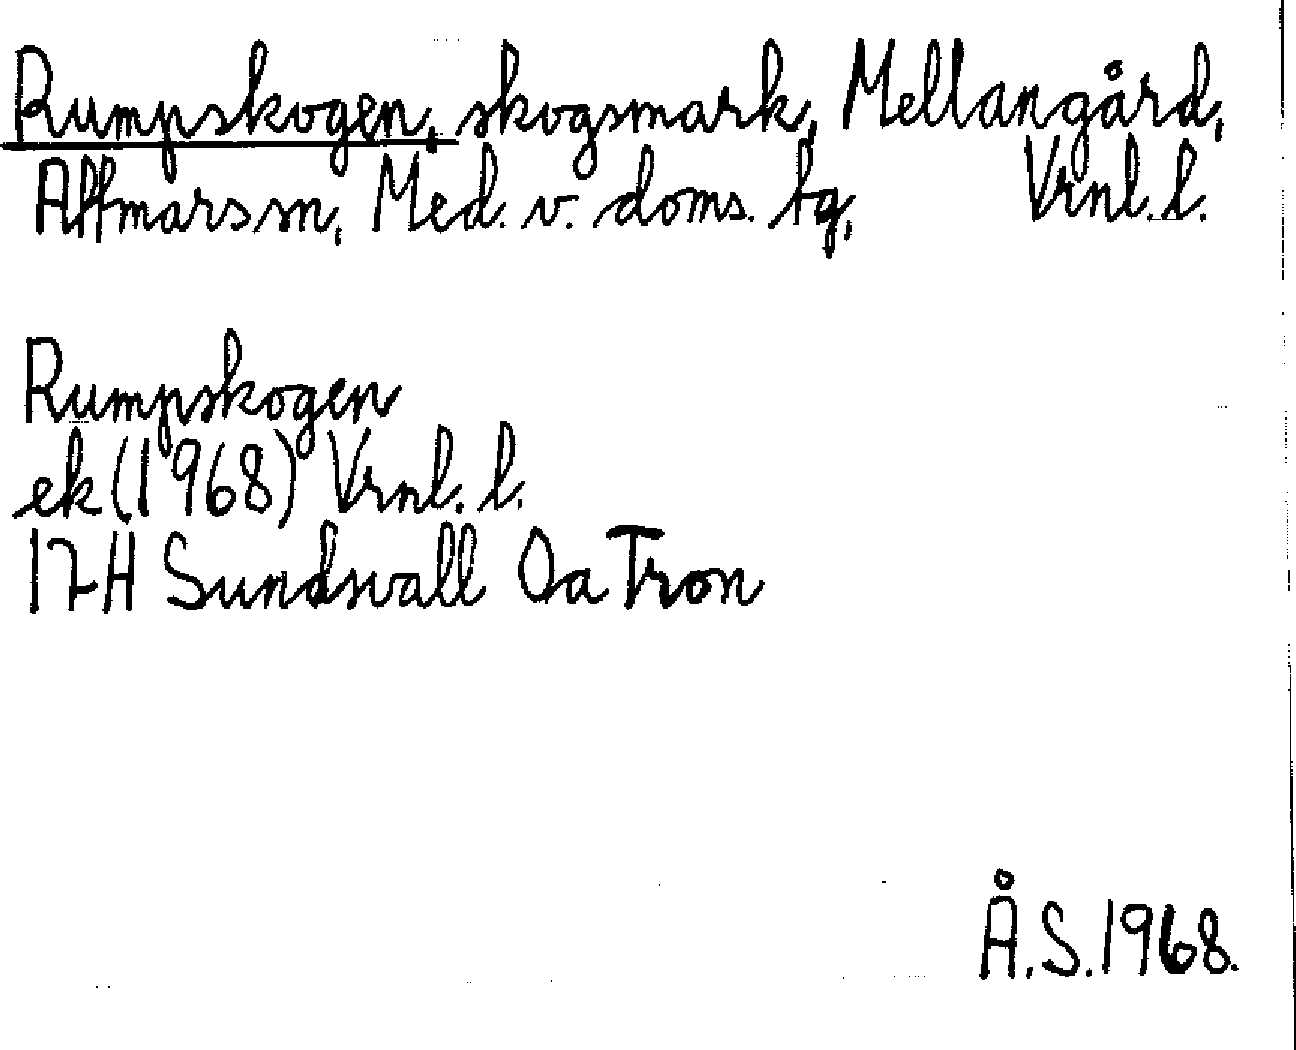 Rumpskogen, skogsmark, Mellangård,
Attmars sn, Med. v. doms. tg, Vrnl. l.
Rumpskogen
ek (1968) Vrnl. l.
17H Sundsvall 0a Tron
Å.S. 1968.